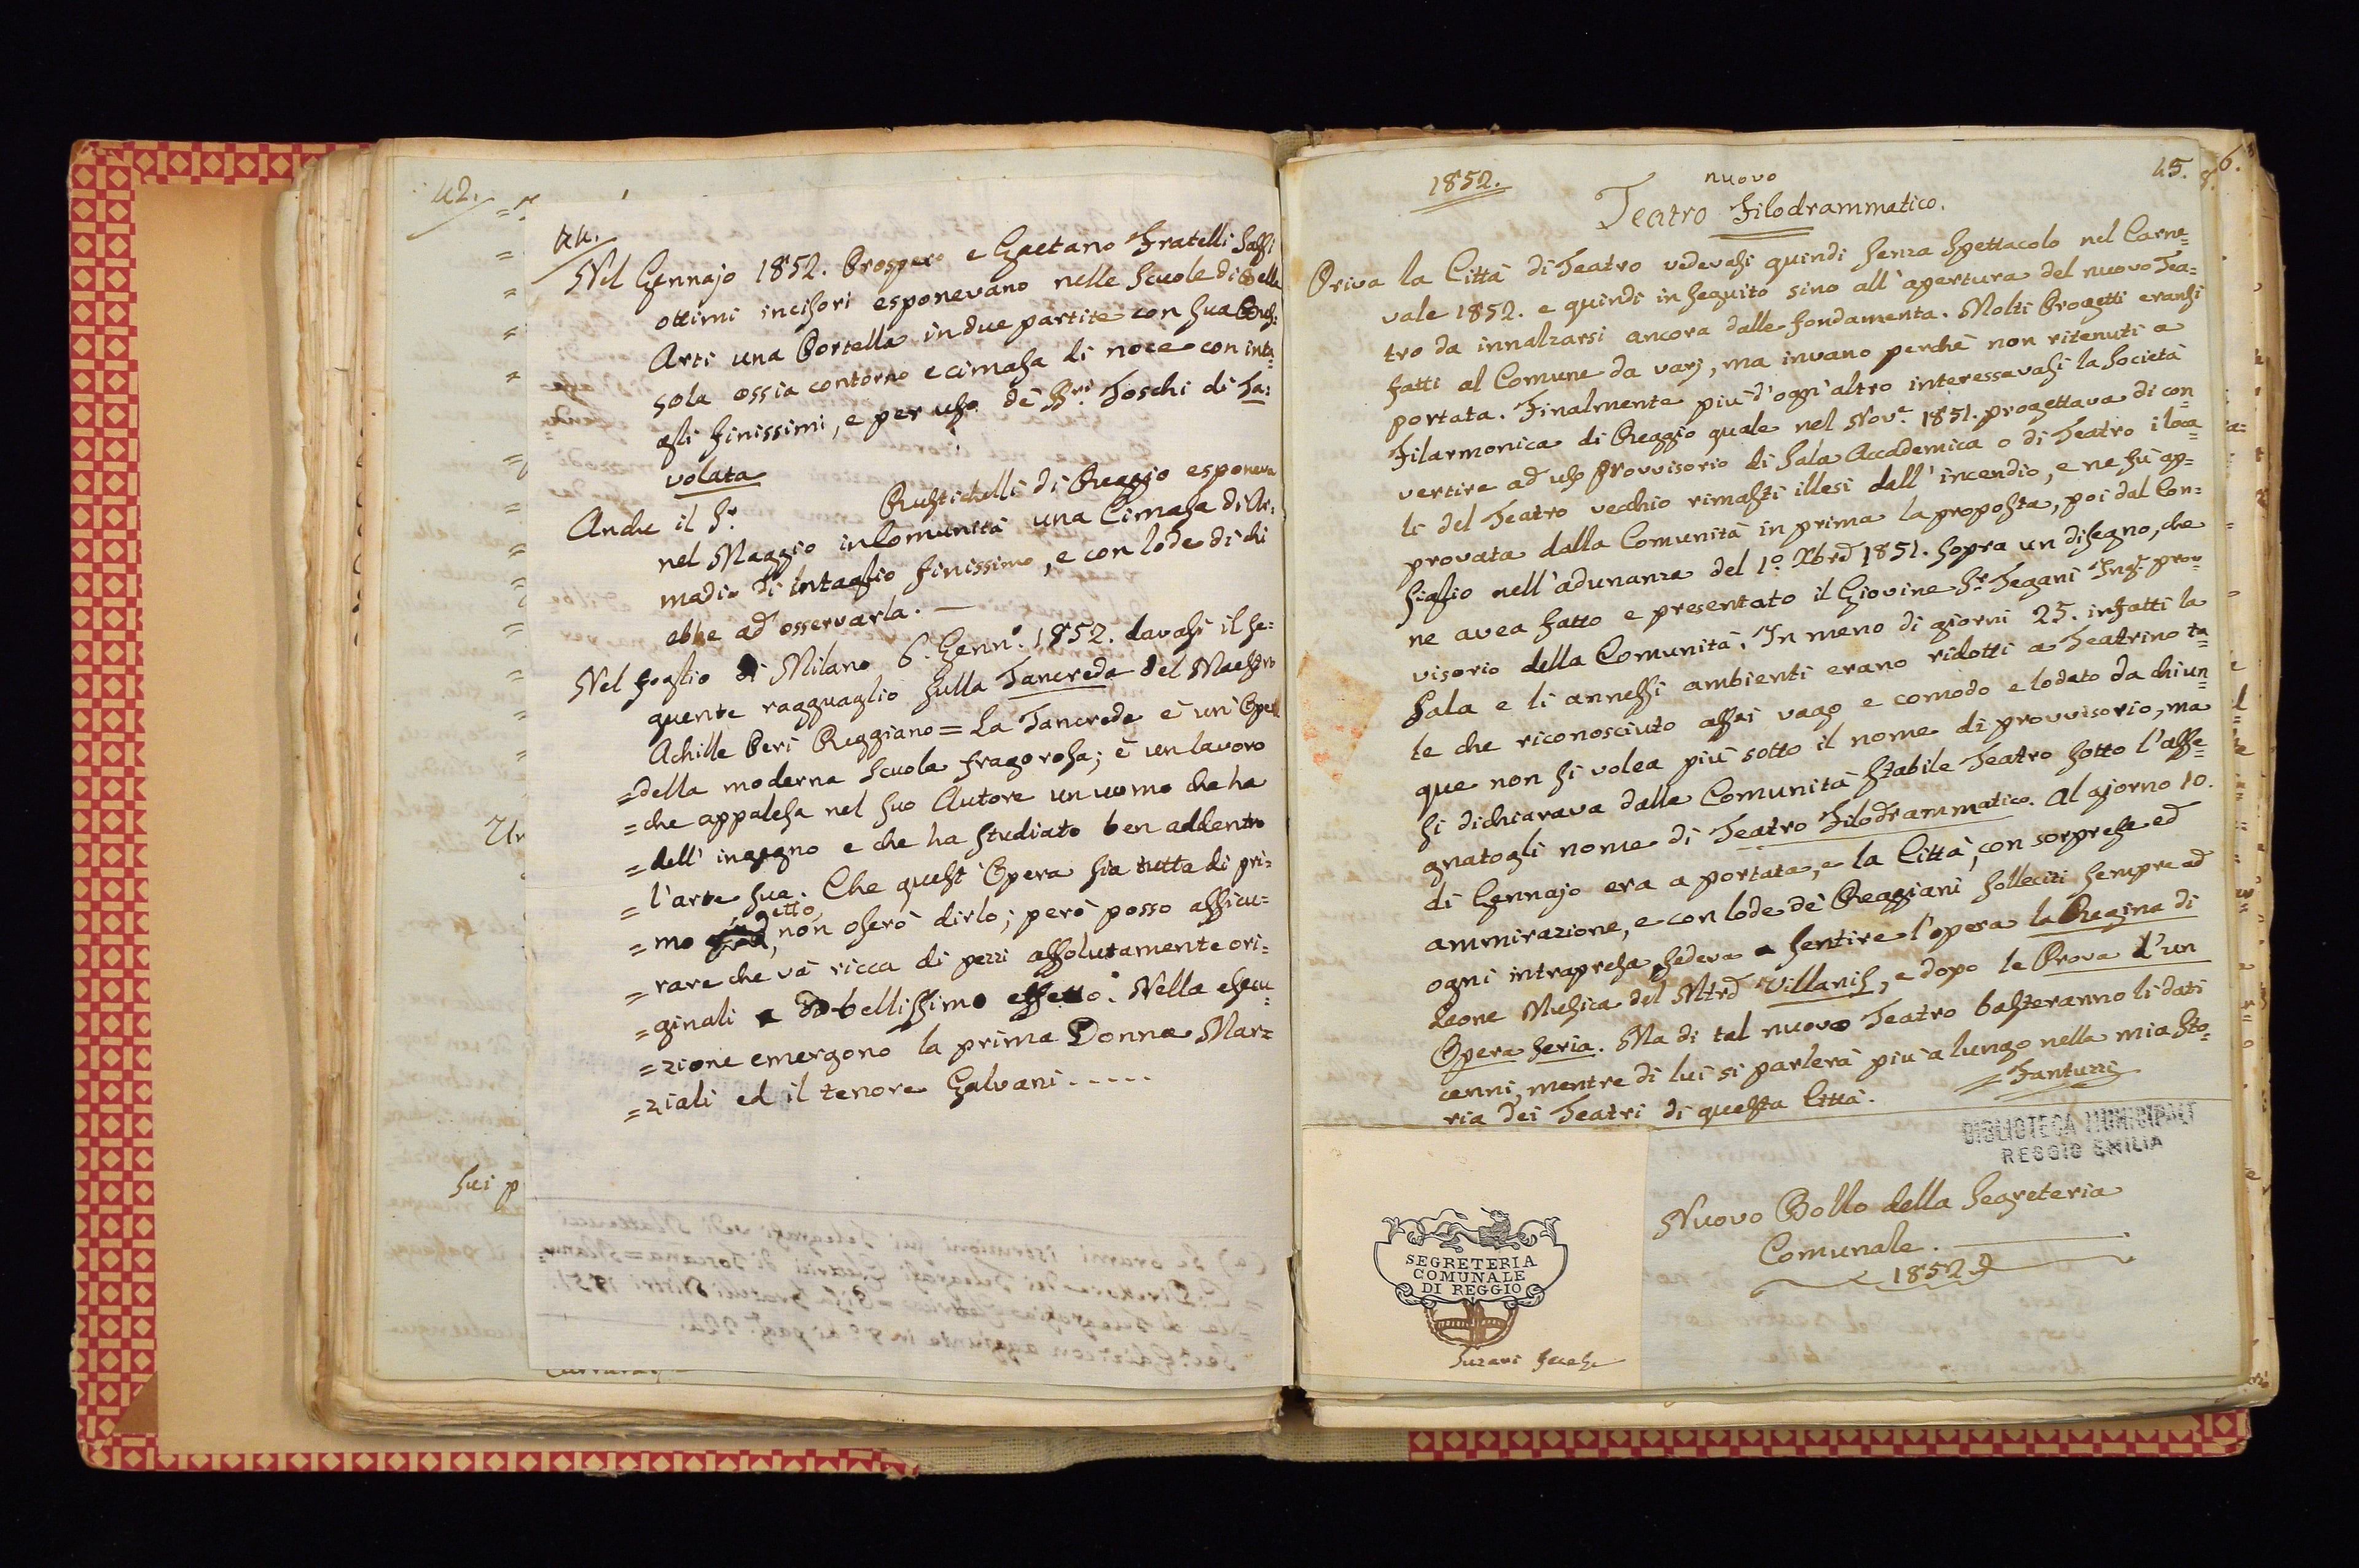 42.
44.
Nel Gennajo 1852. Prospero e Gaetano Fratelli Sassi
ottimi incisori esponevano nelle Scuole di Belle
Arti una Portella in due partite con sua
sola ossia contorno e cimasa di noce con inta=
gli finissimi, e per uso de' Toschi di Ta=
volata
Anche il Sr. Rustichelli di Reggio esponeva
nel Maggio in Comunità una Cimasa di Ar=
madio di intaglio finissimo, e con lode di chi
ebbe ad osservarla. —
Nel foglio di Milano 6. Genno. 1852. davasi il se=
guente ragguaglio sulla Tancreda del Maestro
Achille Peri Reggiano = La Tancreda è un' Opera
= della moderna Scuola fragorosa; è un lavoro
= che appalesa nel suo Autore un uomo che ha
= dell' ingegno e che ha studiato ben addentro
= l'arte sua. Che quest' Opera sia tutta di pri=
= mo getto, non oserò dirlo; però posso assicu=
= rare che và ricca di pezzi assolutamente ori=
= ginali e di bellissimo effetto. Nella esecu=
= zione emergono la prima Donna Mar=
= ziali ed il tenore Galvani . . . . .
Sui p
1852.
45.
6.
nuovo
Teatro Filodrammatico.
Priva la Città di Teatro vedevasi quindi senza Spettacolo nel Carne=
vale 1852. e quindi in seguito sino all' apertura del nuovo Tea=
tro da innalzarsi ancora dalle fondamenta. Molti Progetti eransi
fatti al Comune da varj, ma invano perchè non ritenuti a
portata. Finalmente più d'ogn' altro interessavasi la Società
Filarmonica di Reggio quale nel Nove. 1851. progettava di con
vertire ad uso provvisorio di Sala Accademica o di Teatro i loca=
li del Teatro vecchio rimasti illesi dall' incendio, e ne fù ap=
provata dalla Comunità in prima la proposta, poi dal Con=
siglio nell' adunanza del 1.o Xbre 1851. sopra un disegno, che
ne avea fatto e presentato il Giovine Sr. Tegani Ingr. prov
visorio della Comunità. In meno di giorni 25. infatti la
Sala e li annessi ambienti erano ridotti a Teatrino ta=
le che riconosciuto assai vago e comodo e lodato da chiun=
que non si volea più sotto il nome di provvisorio, ma
si dichiarava dalla Comunità stabile Teatro sotto l'asse=
gnatogli nome di Teatro Filodrammatico. Al giorno 10.
di Gennajo era a portata, e la Città, con sorpresa ed
ammirazione, e con lode de' Reggiani solleciti sempre ad
ogni intrapresa, sedeva a sentire l'opera la Regina di
Leone Musica del Mtro Villanis, e dopo le Prova d'un
Opera seria. Ma di tal nuovo Teatro basteranno li dati
cenni, mentre di lui si parlerà più a lungo nella mia Sto=
ria dei Teatri di questa Città. = Fantuzzi
BIBLIOTECA MUNICIPALE
REGGIO EMILIA
SEGRETERIA
COMUNALE
DI REGGIO
Suzani fece
Nuovo Bollo della Segreteria
Comunale.
1852